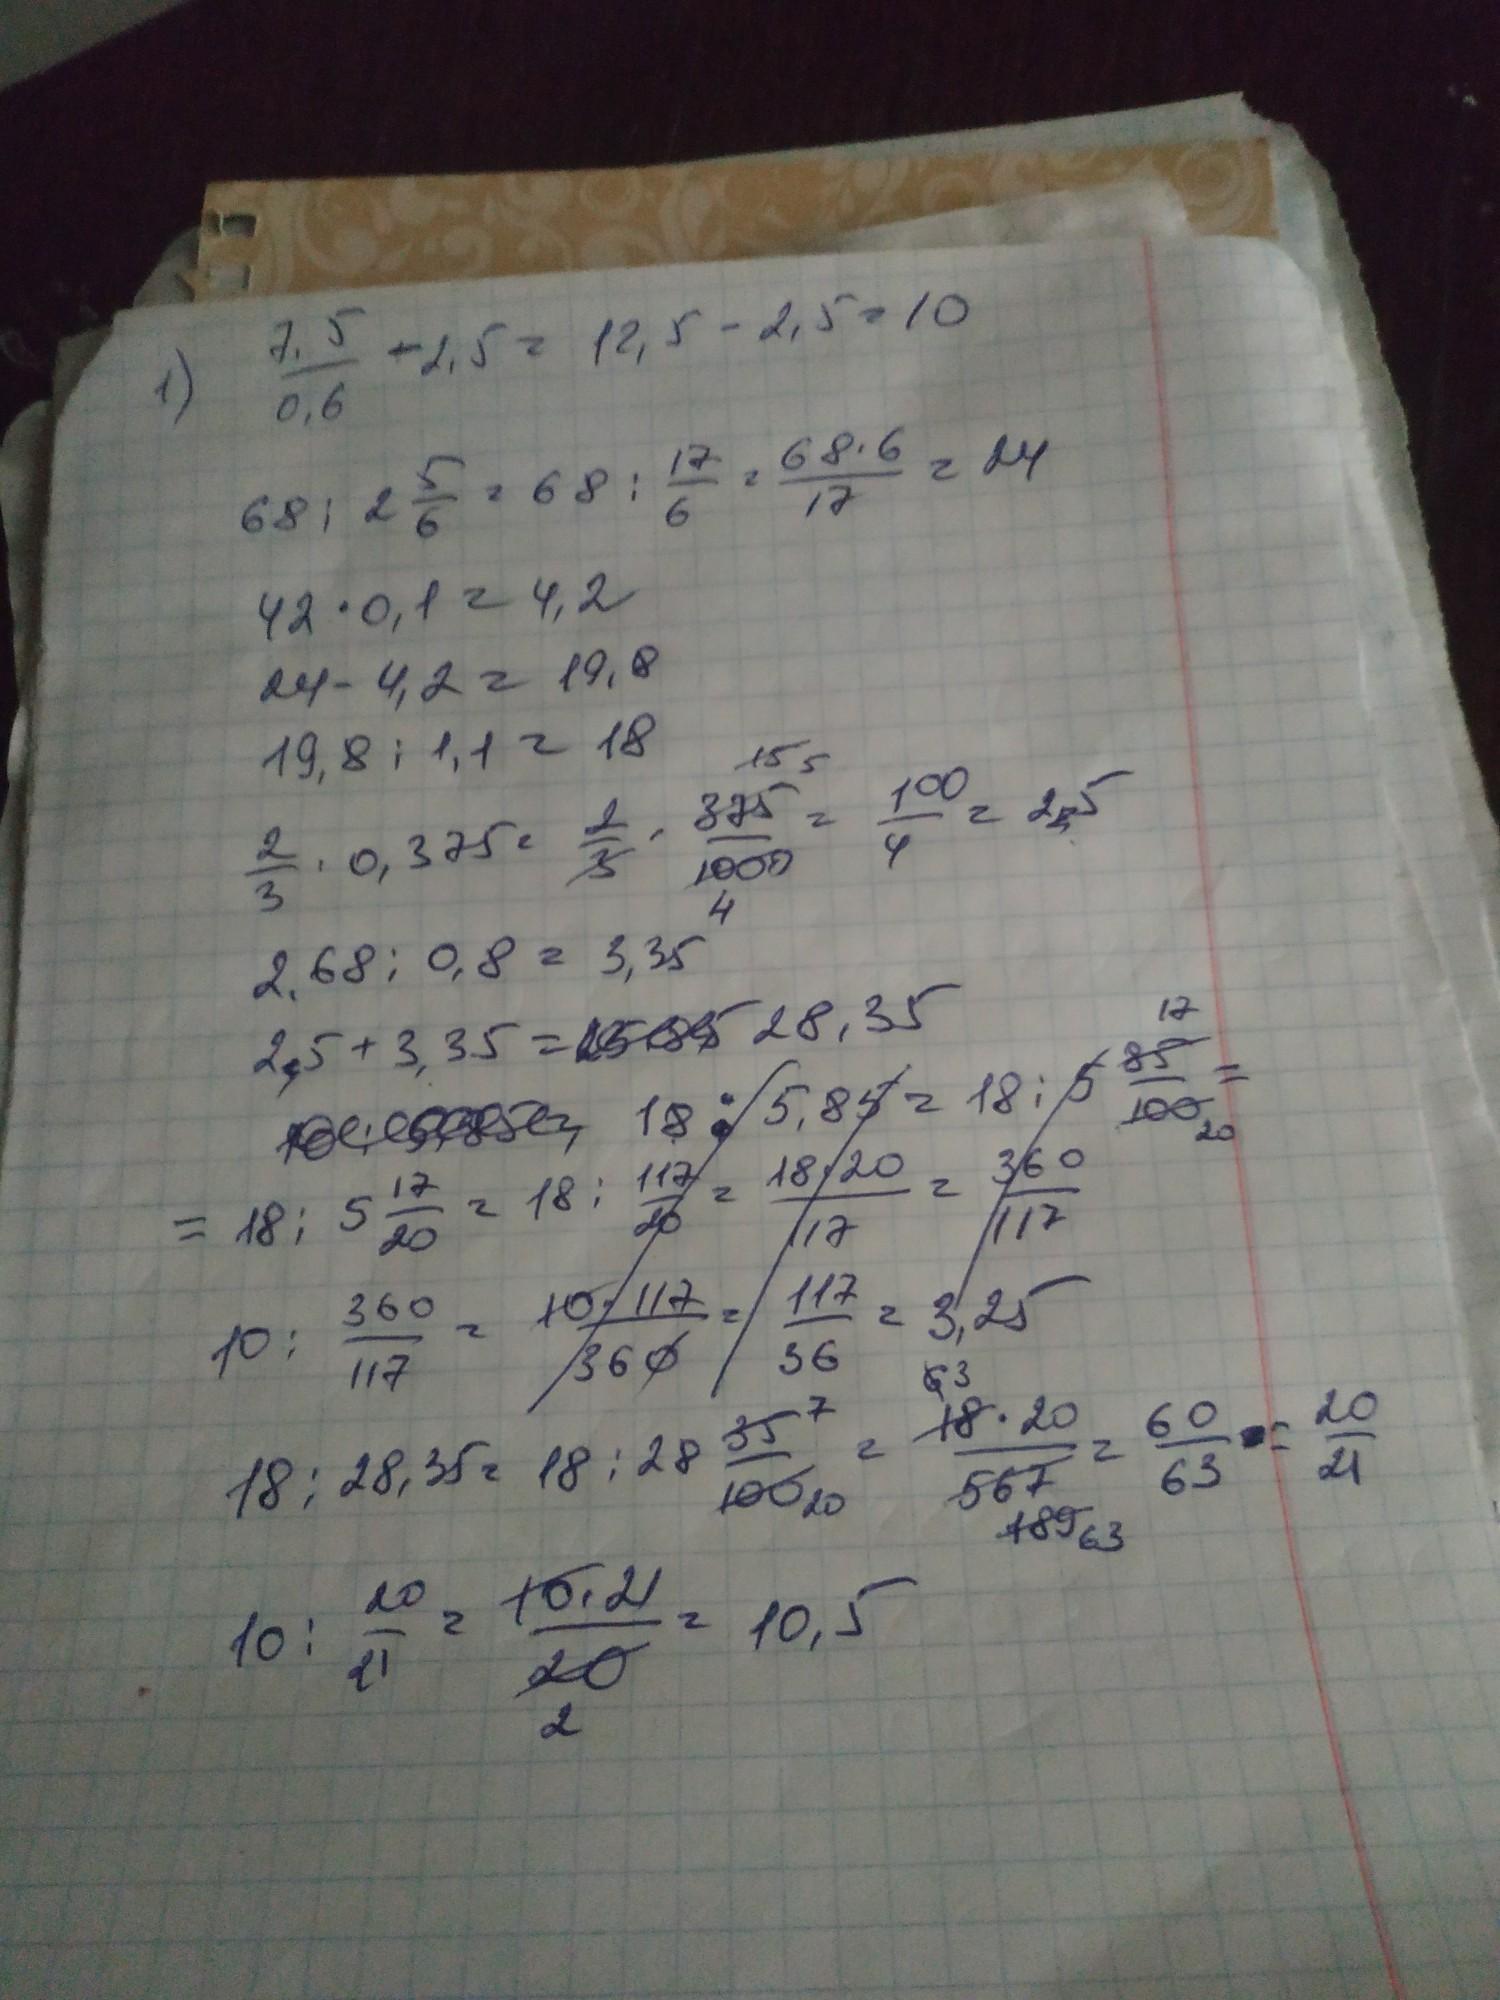 1) 7,5/0,6 - 2,5 = 12,5 - 2,5 = 10
68 : 2 5/6 = 68 : 17/6 = 68·6/17 = 24
42 · 0,1 = 4,2
24 - 4,2 = 19,8
19,8 : 1,1 = 18
15 5
2/3 · 0,375 = 2/3 · 375/1000 = 100/4 = 25
4
2,68 : 0,8 = 3,35
25 + 3,35 = 28,35
17
18 : 5,85 = 18 : 5 85/100 =
20
= 18 : 5 17/20 = 18 : 117/20 = 18·20/117 = 360/117
10 : 360/117 = 10·117/360 = 117/36 = 3,25
6 3
18 : 28,35 = 18 : 28 35/100 7 20 = 18·20/567 = 60/63 = 20/21
189 63
10 : 20/21 = 10·21/20 = 10,5
2